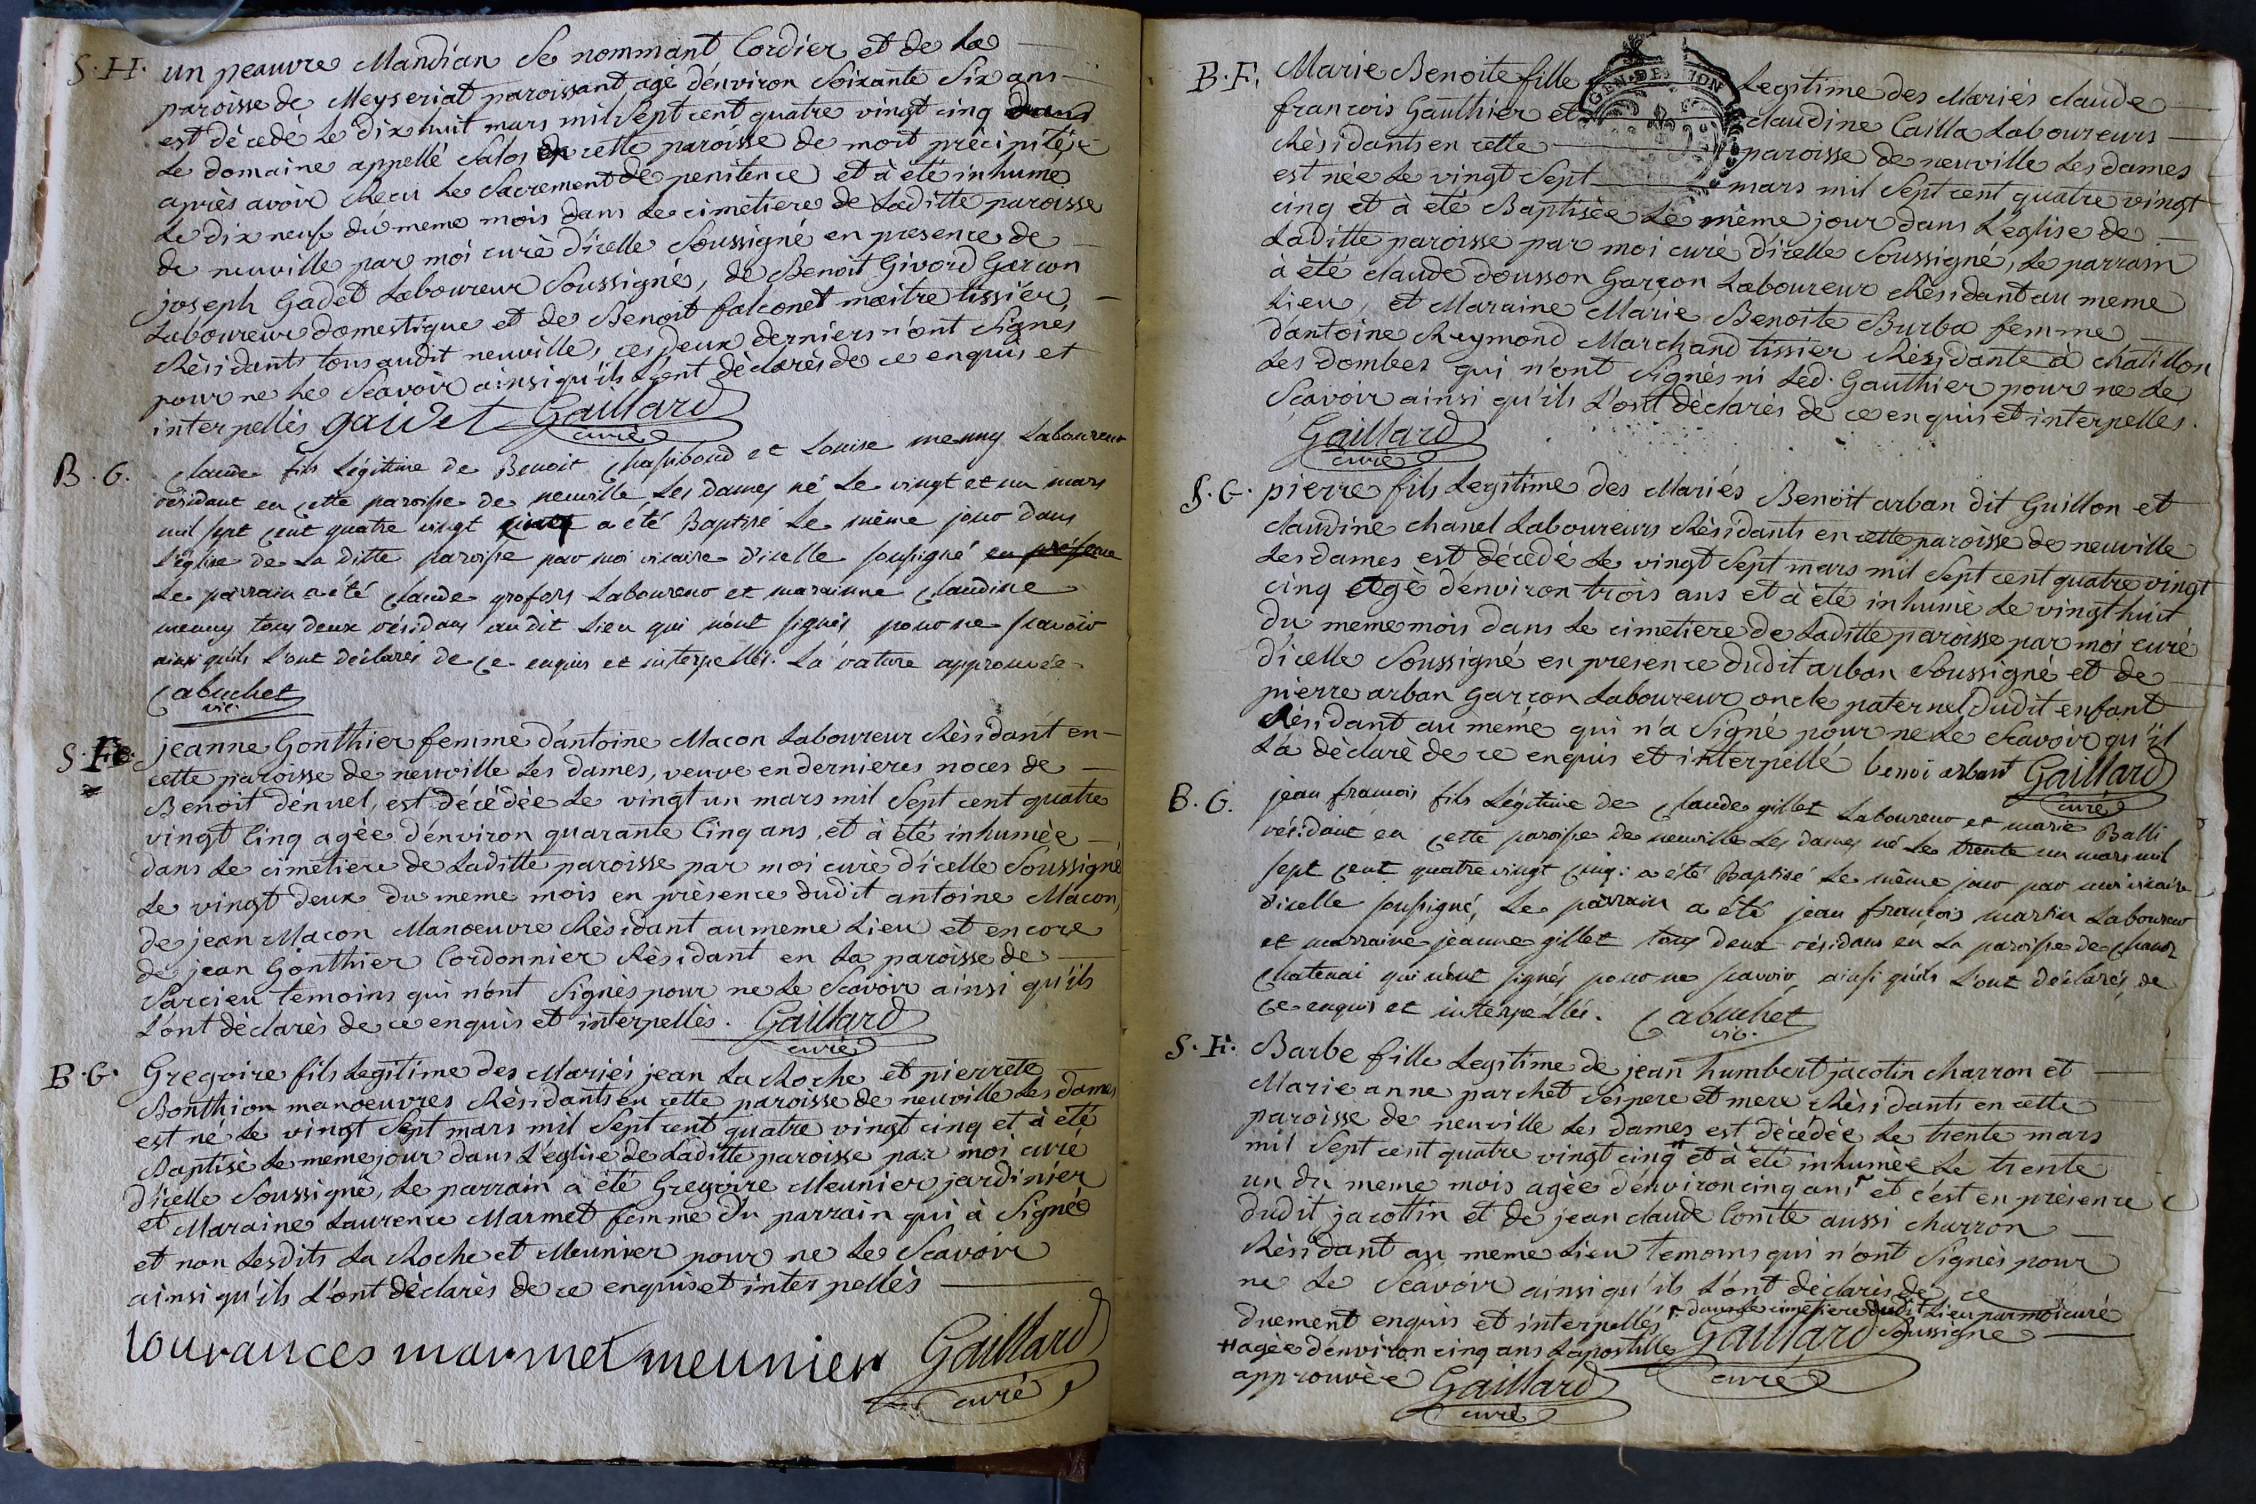 S. H. un peauvre Mandian se nommant Cordier et de la
paroisse de Meyseriat paroissant agé d'environ Soixante Six ans
est décedé le dix huit mars mil Sept cent quatre vingt cinq dans
le domaine appellé Salos de cette paroisse de mort prècipitée
après avoir Recu le Sacrement de penitence et à été inhumé
le dix neuf du meme mois dans le cimetiere de Laditte paroisse
de neuville par moi curé d'icelle Soussigné en presence de
joseph Gadet Laboureur Soussigné, de Benoit Givord Garcon
Laboureur domestique et de Benoit falconet maitre tissier,
Rèsidants tous audit neuville, ces deux derniers n'ont Signés
pour ne le Scavoir ainsi qu'ils L'ont dèclarès de ce enquis et
interpellés gaudet Gaillard
curé
B. G. Claude fils légitime de Benoit Chassiboud et Louise menny Laboureur
résidant en cette paroisse de neuville Les dames né Le vingt et un mars
mil sept cent quatre vingt cinq a été Baptisé Le même jour dans
L'église de La ditte paroisse par moi vicaire d'icelle soussigné en présence
Le parrain a été Claude grosfors Laboureur et marainne Claudine
menny tous deux résidans audit Lieu qui n'ont signés pour ne scavoir
ainsi qu'ils L'ont déclarés de ce enquis et interpellés. La rature approuvée
Cabuchet
vic.
S. F. jeanne Gonthier femme d'antoine Macon Laboureur Rèsidant en
cette paroisse de neuville Les dames, veuve en dernieres noces de
Benoit dénuel, est décédée Le vingt un mars mil Sept cent quatre
vingt Cinq agèe d'environ quarante Cinq ans, et à été inhumèe
dans Le cimetiere de Laditte paroisse par moi curé d'icelle Soussigné
Le vingt deux du meme mois en présence dudit antoine Macon,
de jean Macon Manoeuvre Rèsidant au meme Lieu et encore
de jean Gonthier Cordonnier Rèsidant en La paroisse de
Sarcieu temoins qui n'ont Signès pour ne Le Scavoir ainsi qu'ils
L'ont dèclarès de ce enquis et interpellés. Gaillard
curé
B. G. Gregoire fils Legitime des Mariés jean La Roche et pierrete
Bonthion manoeuvres Rèsidants en cette paroisse de neuville Les dames
est né Le vingt Sept mars mil Sept cent quatre vingt cinq et à été
Baptisè Le meme jour dans L'église de Laditte paroisse par moi curé
d'icelle Soussigné, Le parrain a été Gregoire Meunier jardinier
et Maraine Laurence Marmet femme du parrain qui à Signée
et non Lesdits La Roche et Meunier pour ne Le Scavoir
ainsi qu'ils L'ont dèclarès de ce enquis et interpellès
lourances marmet meunier Gaillard
curé
B. F. Marie Benoite fille Legitime des Mariés claude
GEN. DE
françois Gauthier et claudine Cailla Laboureurs
Rèsidants en cette paroisse de neuville Les dames
est nèe Le vingt Sept mars mil Sept cent quatre vingt
cinq et à été Baptisée Le mème jour dans L'eglise de
Laditte paroisse par moi curé d'icelle Soussigné, Le parrain
à été claude dousson Garçon Laboureur Rèsidant au meme
Lieu, et Maraine Marie Benoite Burba femme
d'antoine Reymond Marchand tissier Rèsidante à Chatillon
Les dombes qui n'ont Signés ni Led. Gauthier pour ne Le
Scavoir ainsi qu'ils L'ont dèclarès de ce enquis et interpelles.
Gaillard
curé
S. G. pierre fils Legitime des Mariés Benoit arban dit Guillon et
claudine chanel Laboureurs Rèsidants en cette paroisse de neuville
Les dames est décèdé Le vingt Sept mars mil Sept cent quatre vingt
cinq agé d'environ trois ans et à été inhumè Le vingt huit
du meme mois dans Le cimetiere de Laditte paroisse par moi curé
d'icelle Soussigné en presence dudit arban Soussigné et de
pierre arban garçon Laboureur oncle paternel dudit enfant
Rèsidant au meme qui n'a Signé pour ne Le Scavoir qu'il
L'a dèclarè de ce enquis et interpellé benoi arbant Gaillard
curé
B. G. jean francois fils Légitime de Claude gillet Laboureur et marie Balli
résidant en cette paroisse de neuville Les dames né Le trente un mars mil
sept cent quatre vingt cinq. a été Baptisé Le même jour par moi vicaire
d'icelle soussigné, Le parrain a été jean françois martin Laboureur
et marraine jeanne gillet tous deux résidans en La paroisse de Chanoz
Chatenai qui n'ont signés pour ne scavoir ainsi qu'ils L'ont déclarés de
ce enquis et interpéllés. Cabuchet
vic.
S. F. Barbe fille Legitime de jean humbert jacotin charron et
Marie anne parchet Ses pere et mere Rèsidants en cette
paroisse de neuville Les dames est décédée Le trente mars
mil Sept cent quatre vingt cinq # et à été inhumèe Le trente
un du meme mois agèe d'environ cinq ans et c'est en prèsence
dudit jacottin et de jean claude Comte aussi charron
Rèsidant au meme Lieu temoins qui n'ont Signès pour
ne Le Scavoir ainsi qu'ils L'ont dèclarès de ce
duement enquis et interpellés dans Le cimetiere dudit Lieu par moi curé
Soussigné
# agèe d'environ cinq ans L'apostille Gaillard
curé
approuvèe Gaillard
curé